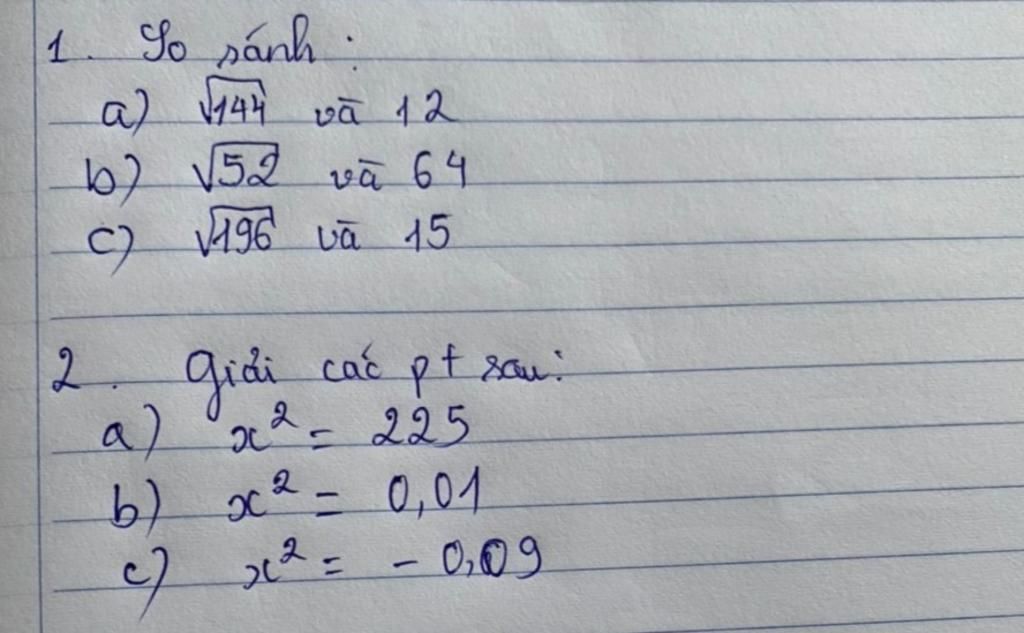 1. So sánh :
a) √144 và 12
b) √52 và 64
c) √196 và 15
2. Giải các pt sau:
a) x² = 225
b) x² = 0,01
c) x² = - 0,09